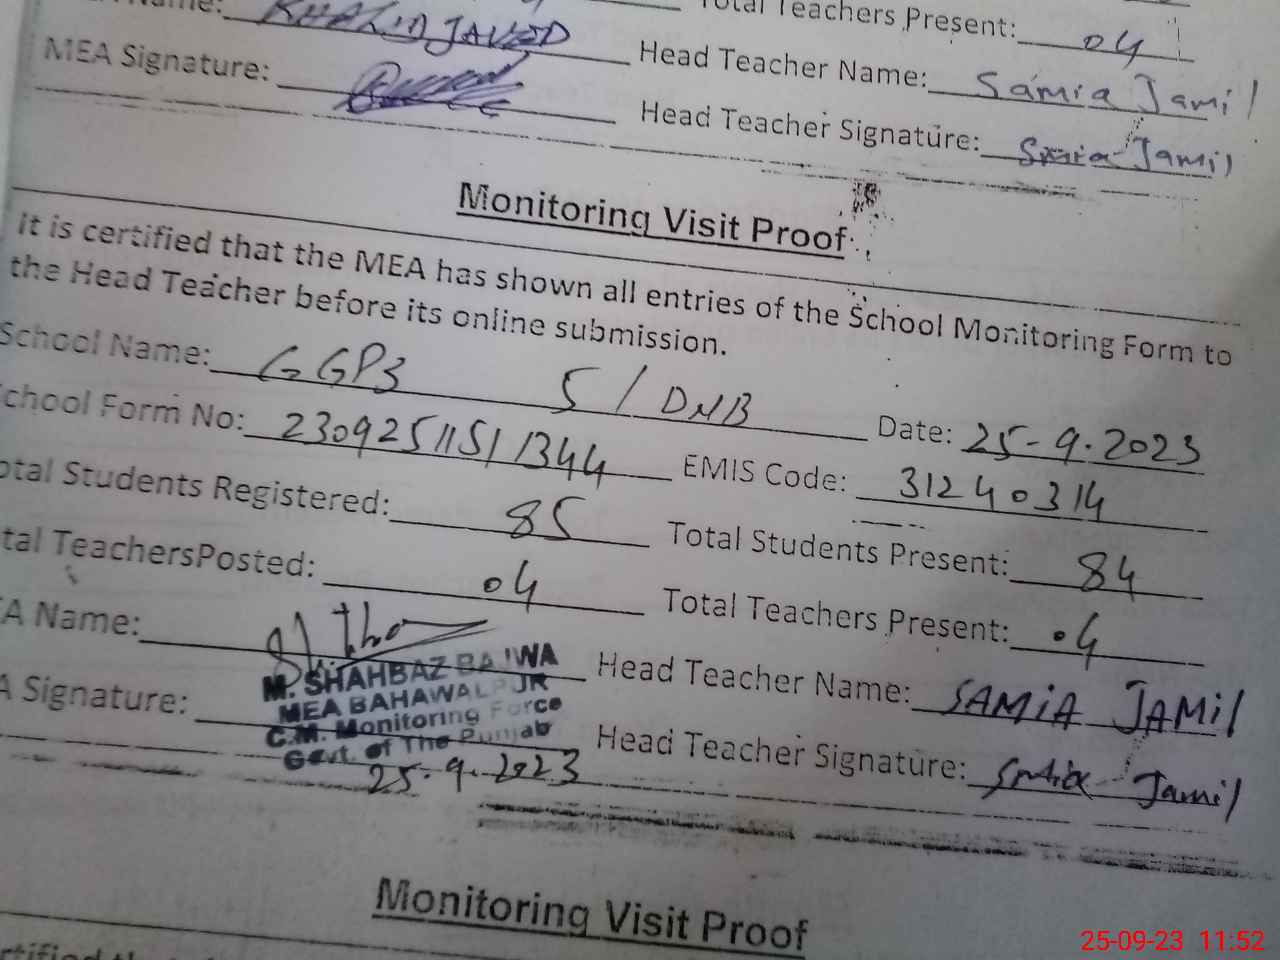 Name: KHALID JAVED Total Teachers Present: 04
MEA Signature: Head Teacher Name: Samia Jamil
Head Teacher Signature: Samia Jamil
Monitoring Visit Proof
It is certified that the MEA has shown all entries of the School Monitoring Form to
the Head Teacher before its online submission.
School Name: GGPS 5/DNB Date: 25-9-2023
chool Form No: 23092511511344 EMIS Code: 31240314
otal Students Registered: 85 Total Students Present: 84
tal TeachersPosted: 04 Total Teachers Present: 04
A Name: Head Teacher Name: SAMIA JAMil
M. SHAHBAZ BAJWA
MEA BAHAWALPUR
C.M. Monitoring Force
Govt. of The Punjab
A Signature: 25-9-2023 Head Teacher Signature: Samia Jamil
Monitoring Visit Proof
25-09-23 11:52